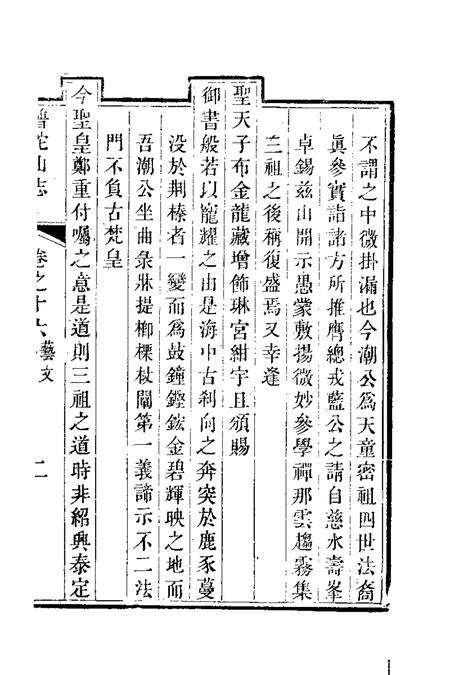 不謂之中微掛漏也今潮公爲天童密祖四世法裔
眞參實詣諸方所推膺總戎藍公之請自慈水壽峯
卓錫兹山開示愚蒙敷揚微妙參學禪那雲趨霧集
三祖之後稱復盛焉又幸逢
聖天子布金龍藏增飾琳宮紺宇且頒賜
御書般若以寵耀之由是海中古刹向之奔突於鹿豕蔓
没於荆榛者一變而爲鼓鐘鏗鋐金碧輝映之地而
吾潮公坐曲彔牀提榔楖杖闡第一義諦示不二法
門不負古梵皇
今聖皇鄭重付囑之意是道則三祖之道時非紹興泰定
普陀山志
卷之十六 藝文 二